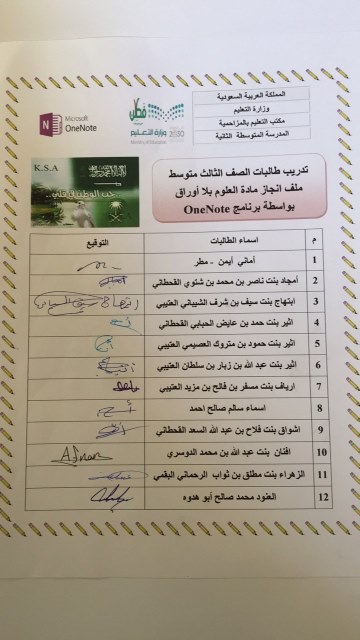 المملكة العربية السعودية
وزارة التعليم
مكتب التعليم بالمزاحمية
المدرسة المتوسطة الثانية
وزارة التعليم
Ministry of Education
Microsoft
OneNote
K.S.A
حب الوطن في قلبي..
تدريب طالبات الصف الثالث متوسط
ملف انجاز مادة العلوم بلا أوراق
بواسطة برنامج OneNote
م اسماء الطالبات التوقيع
1 أماني أيمن - مطر
2 أمجاد بنت ناصر بن محمد بن شلوي القحطاني
3 ابتهاج بنت سيف بن شرف الشيباني العتيبي
4 اثير بنت حمد بن عايض الحبابي القحطاني
5 اثير بنت حمود بن متروك العصيمي العتيبي
6 اثير بنت عبد الله بن زبار بن سلطان العتيبي
7 ارياف بنت مسفر بن فالح بن مزيد العتيبي
8 اسماء سالم صالح احمد
9 اشواق بنت فلاح بن عبد الله السعد القحطاني
10 افنان بنت عبد الله بن محمد الدوسري Afnan
11 الزهراء بنت مطلق بن ثواب الرحماني البقمي
12 العنود محمد صالح أبو هدوه